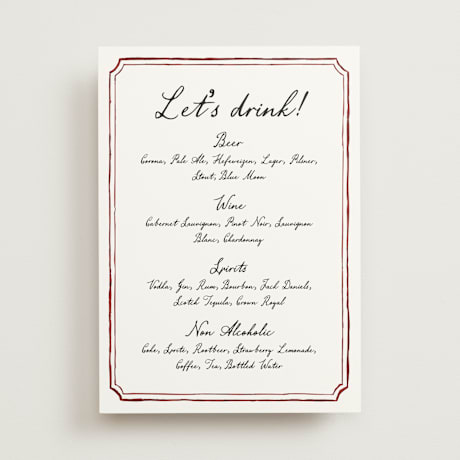 Let's drink!
Beer
Corona, Pale Ale, Hefeweizen, Lager, Pilsner,
Stout, Blue Moon
Wine
Cabernet Sauvignon, Pinot Noir, Sauvignon
Blanc, Chardonnay
Spirits
Vodka, Gin, Rum, Bourbon, Jack Daniels,
Scotch Tequila, Crown Royal
Non Alcoholic
Coke, Sprite, Rootbeer, Strawberry Lemonade,
Coffee, Tea, Bottled Water